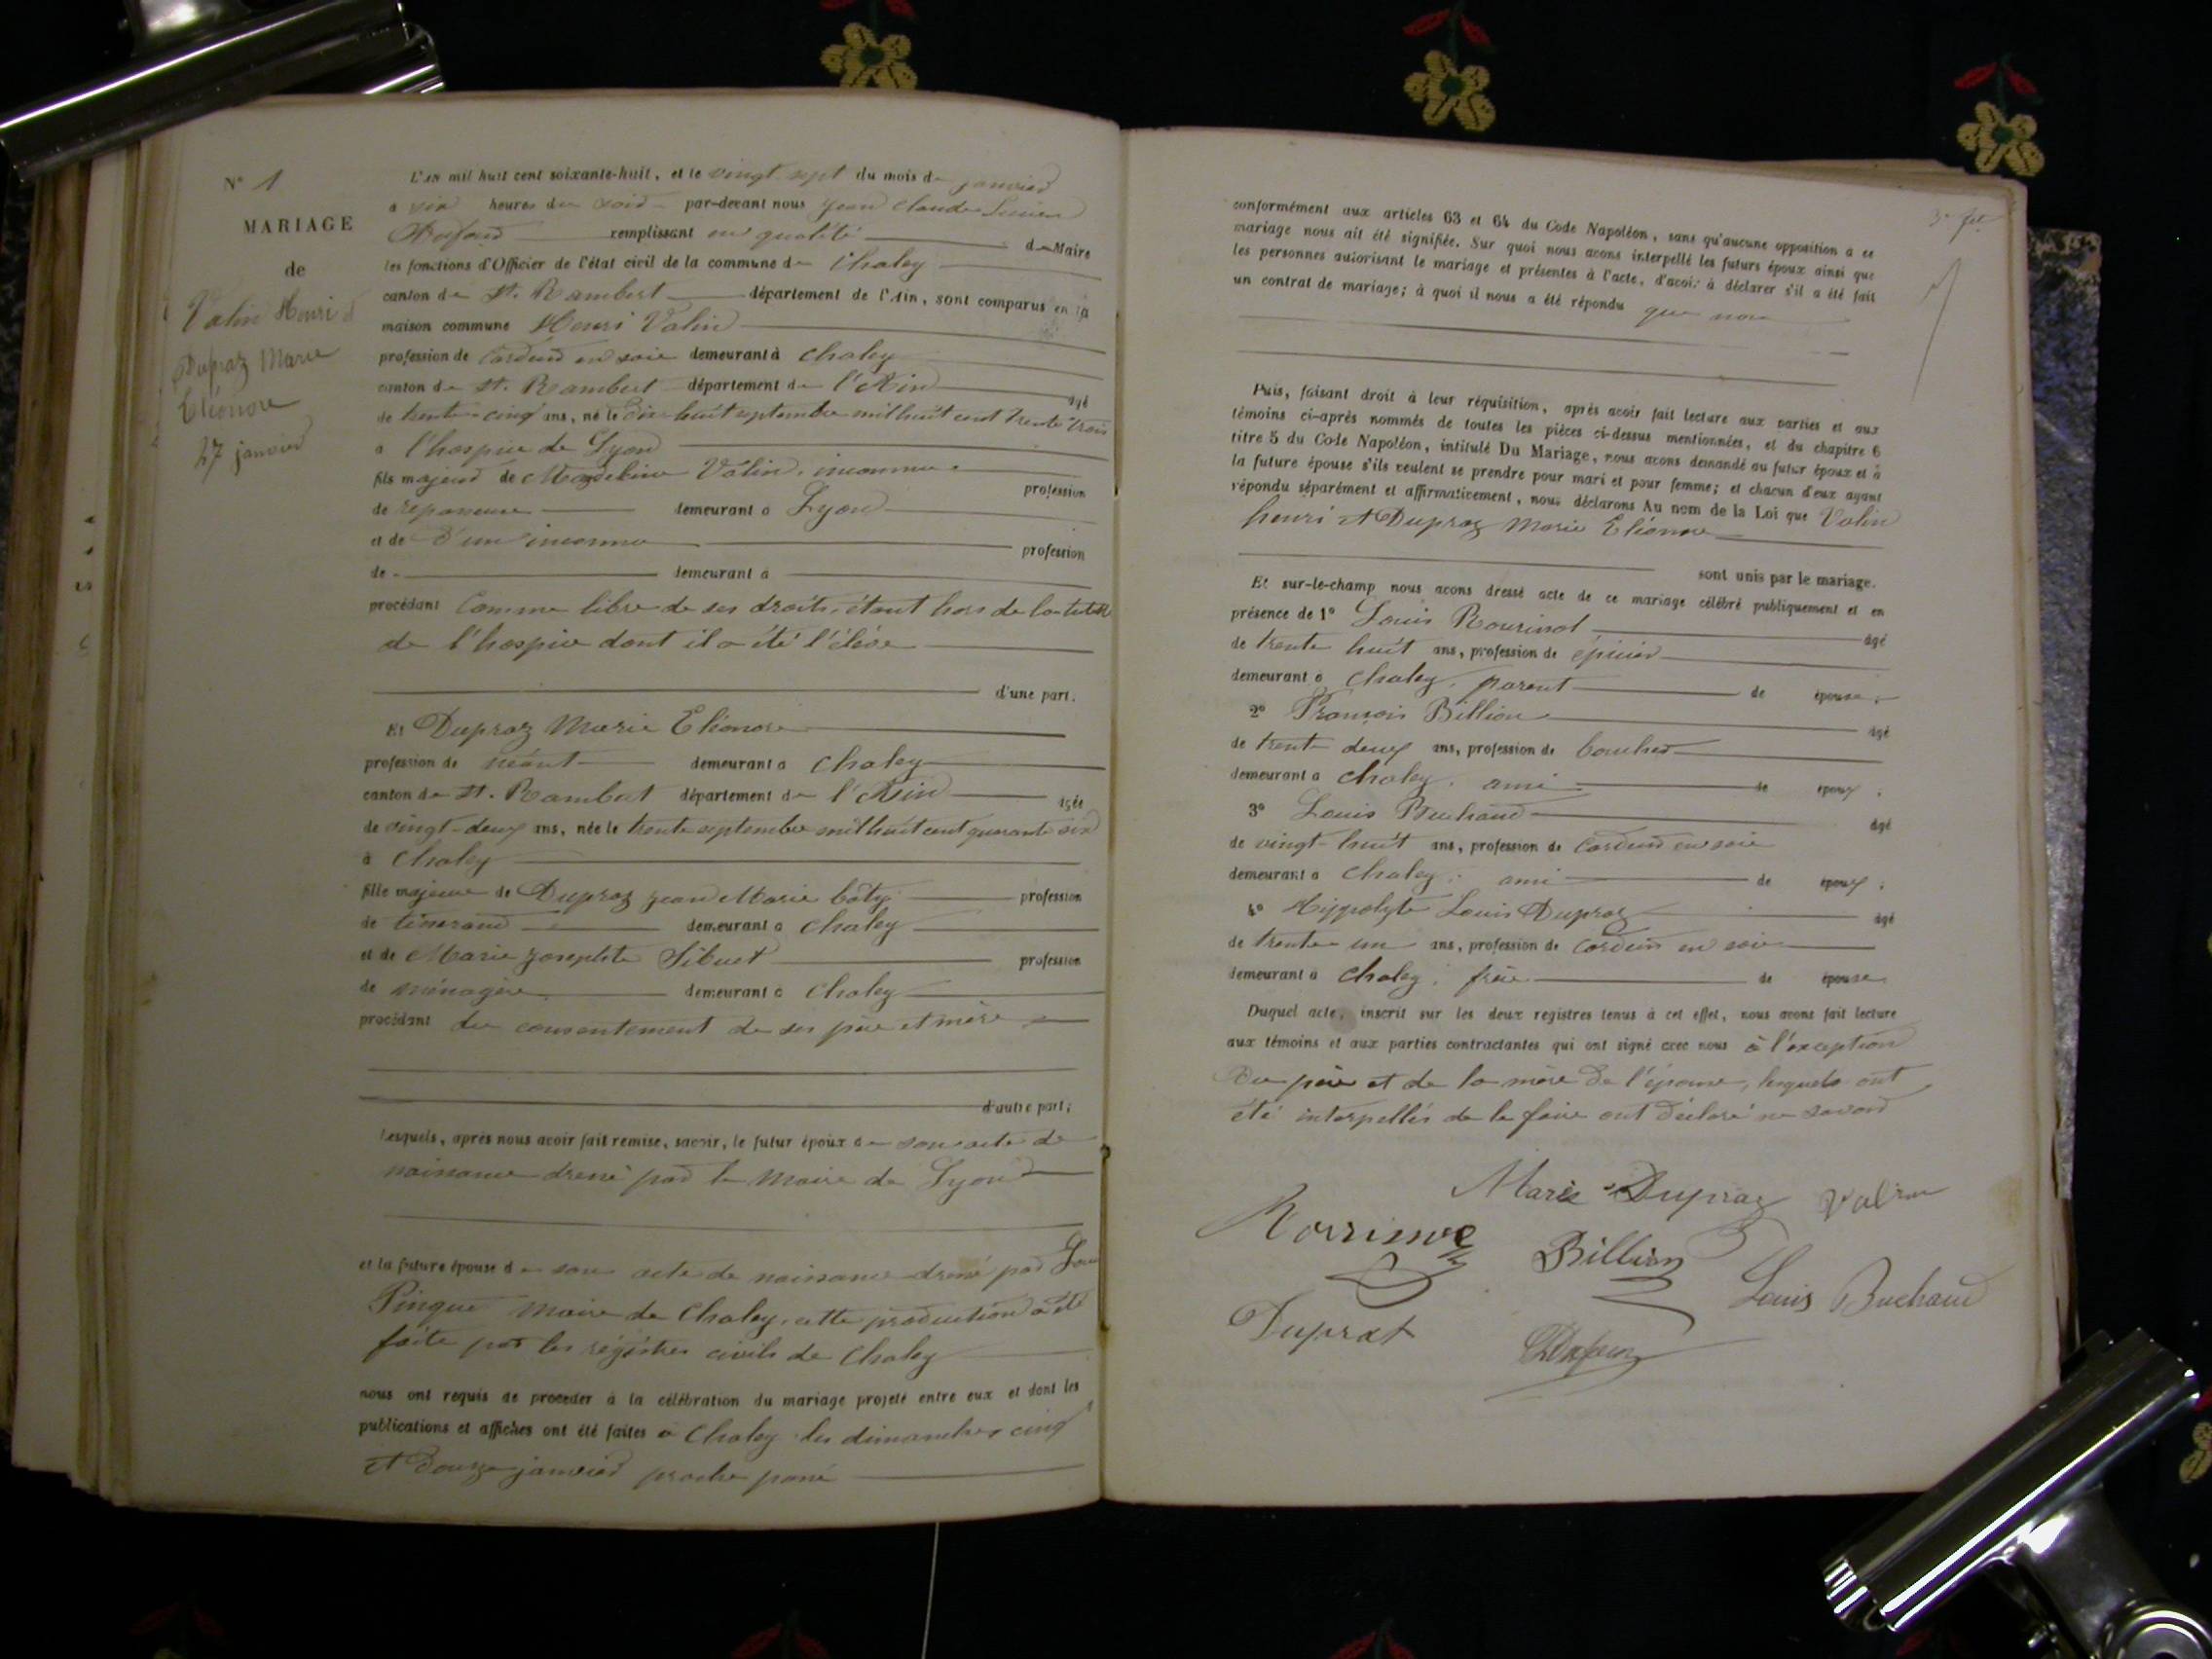 N° 1
MARIAGE
de
Valin Henri &
Dupraz Marie
Eléonore
27 janvier
L'AN mil huit cent soixante-huit, et le vingt-sept du mois de janvier
à six heures du soir par-devant nous Jean Claude Lucien
Dufour remplissant en qualité de Maire
les fonctions d'Officier de l'état civil de la commune de Chaley
canton de St. Rambert département de l'Ain, sont comparus en la
maison commune Henri Valin
profession de Cardeur en soie demeurant à Chaley
canton de St. Rambert département de l'Ain âgé
de trente-cinq ans, né le dix-huit septembre mil huit cent trente trois
à l'hospice de Lyon
fils majeur de Magdeleine Valin, inconnue profession
de demeurant à Lyon
et de d'un inconnu profession
de demeurant à
procédant Comme libre de ses droits, étant hors de la tutelle
de l'hospice dont il a été l'élève
d'une part.
Et Dupraz Marie Eléonore
profession de néant demeurant à Chaley
canton de St. Rambert département de l'Ain âgée
de vingt-deux ans, née le trente septembre mil huit cent quarante six
à Chaley
fille majeure de Dupraz Jean Marie baty profession
de tisserand demeurant à Chaley
et de Marie Josephte Sibuet profession
de ménagère demeurant à Chaley
procédant du consentement de ses père et mère
d'autre part;
Lesquels, après nous avoir fait remise, savoir, le futur époux de son acte de
naissance dressé par le Maire de Lyon
et la future épouse de son acte de naissance dressé par
Pingue Maire de Chaley, cette production a été
faite par les régistres civils de Chaley
nous ont requis de procéder à la célébration du mariage projeté entre eux et dont les
publications et affiches ont été faites à Chaley les dimanches cinq
et douze janvier proche passé
conformément aux articles 63 et 64 du Code Napoléon, sans qu'aucune opposition à ce
mariage nous ait été signifiée. Sur quoi nous avons interpellé les futurs époux ainsi que
les personnes autorisant le mariage et présentes à l'acte, d'avoir à déclarer s'il a été fait
un contrat de mariage; à quoi il nous a été répondu que non
Puis, faisant droit à leur réquisition, après avoir fait lecture aux parties et aux
témoins ci-après nommés de toutes les pièces ci-dessus mentionnées, et du chapitre 6
titre 5 du Code Napoléon, intitulé Du Mariage, nous avons demandé au futur époux et à
la future épouse s'ils veulent se prendre pour mari et pour femme; et chacun d'eux ayant
répondu séparément et affirmativement, nous déclarons Au nom de la Loi que Valin
henri et Dupraz Marie Eléonore
sont unis par le mariage.
Et sur-le-champ nous avons dressé acte de ce mariage célébré publiquement et en
présence de 1° Louis Rourinot âgé
de trente huit ans, profession de épicier
demeurant à Chaley, parent de épouse;
2° François Billion âgé
de trente deux ans, profession de boucher
demeurant à Chaley, ami de époux;
3° Louis Buchaud âgé
de vingt-huit ans, profession de Cardeur en soie
demeurant à Chaley; ami de époux;
4° Hippolyte Louis Dupraz âgé
de trente un ans, profession de Cardeur en soie
demeurant à Chaley; frère de épouse
Duquel acte, inscrit sur les deux registres tenus à cet effet, nous avons fait lecture
aux témoins et aux parties contractantes qui ont signé avec nous à l'exception
du père et de la mère de l'épouse, lesquels ont
été interpellés de le faire ont déclaré ne savoir
Marie Dupraz Valin
Billion
Louis Buchaud
Duprat